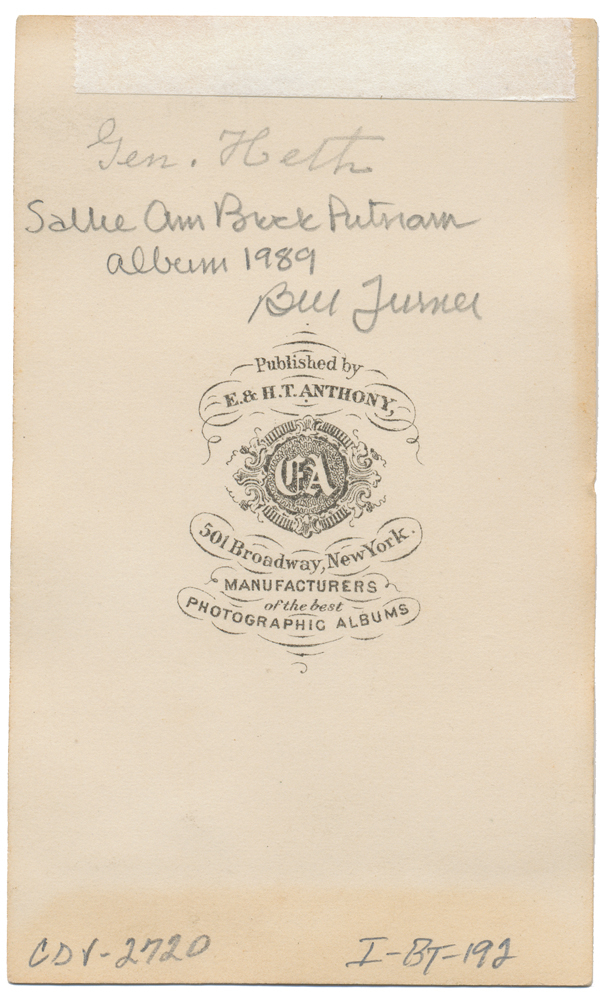 Gen. Heth
Sallie Ann Brock Putnam
album 1989
Bill Turner
Published by
E. & H. T. ANTHONY,
EA
501 Broadway, New York.
MANUFACTURERS
of the best
PHOTOGRAPHIC ALBUMS
CDV-2720
I-BT-192